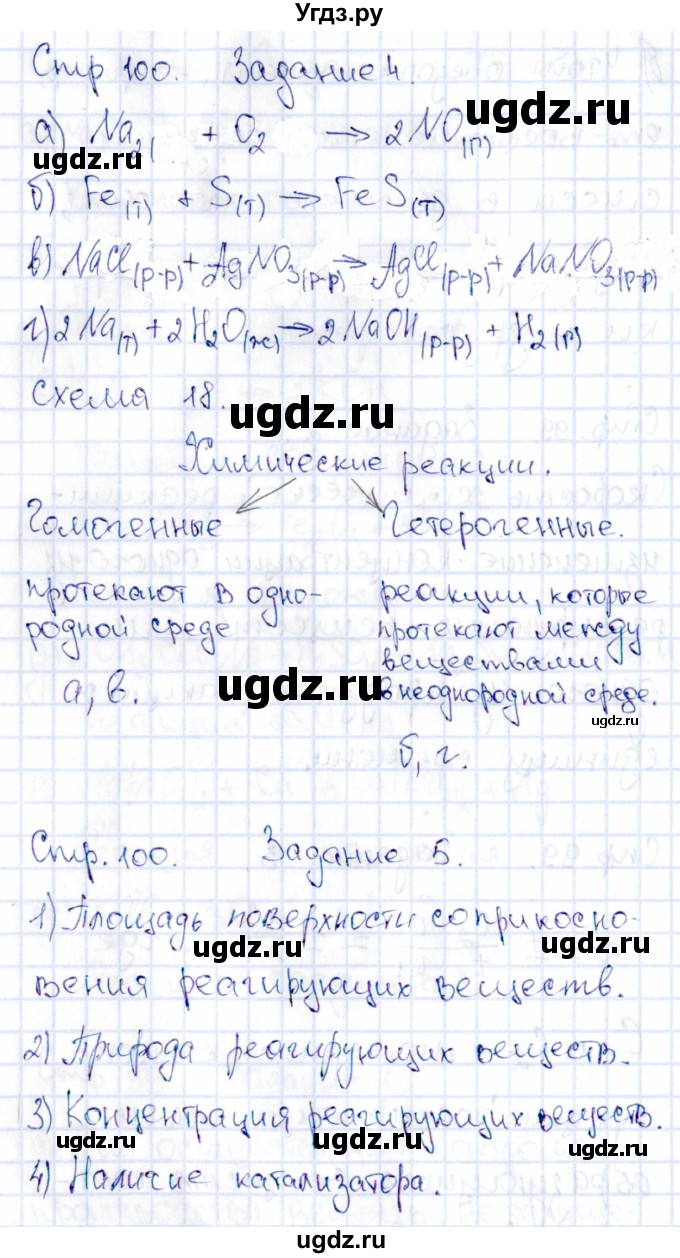 Угдз.ру
Стр 100. Задание 4.
ugdz.ru
а) Na2( + O2 → 2NO(г)
ugdz.ru
б) Fe(т) + S(т) → FeS(т)
в) NaCl(р-р) + AgNO3(р-р) → AgCl(р-р) + NaNO3(р-р)
г) 2Na(т) + 2H2O(ж) → 2NaOH(р-р) + H2(г)
Схема 18.
ugdz.ru
Химические реакции.
Гомогенные
протекают в одно-
родной среде
а, в.
Гетерогенные.
реакции, которые
протекают между
веществами
в неоднородной среде.
б, г.
ugdz.ru
ugdz.ru
Стр. 100. Задание 5.
1) Площадь поверхности соприкосно-
ugdz.ru
ugdz.ru
вения реагирующих веществ.
2) Природа реагирующих веществ.
3) Концентрация реагирующих веществ.
ugdz.ru
ugdz.ru
ugdz.ru
4) Наличие катализатора.
ugdz.ru
ugdz.ru